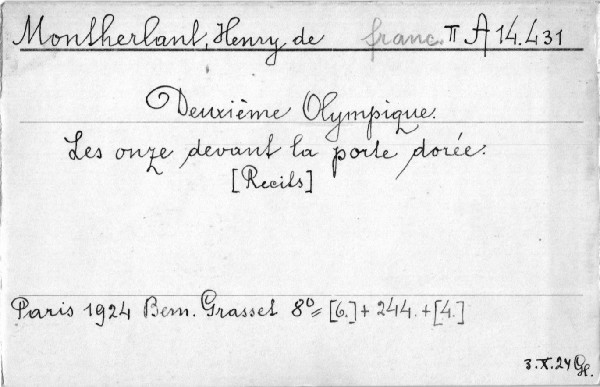 Montherlant, Henry de franc. II A 14.431
Deuxième Olympique.
Les onze devant la porte dorée.
[Recits]
Paris 1924 Bern. Grasset 8° = [6.] + 244. + [4.]
3.X.24 GH.